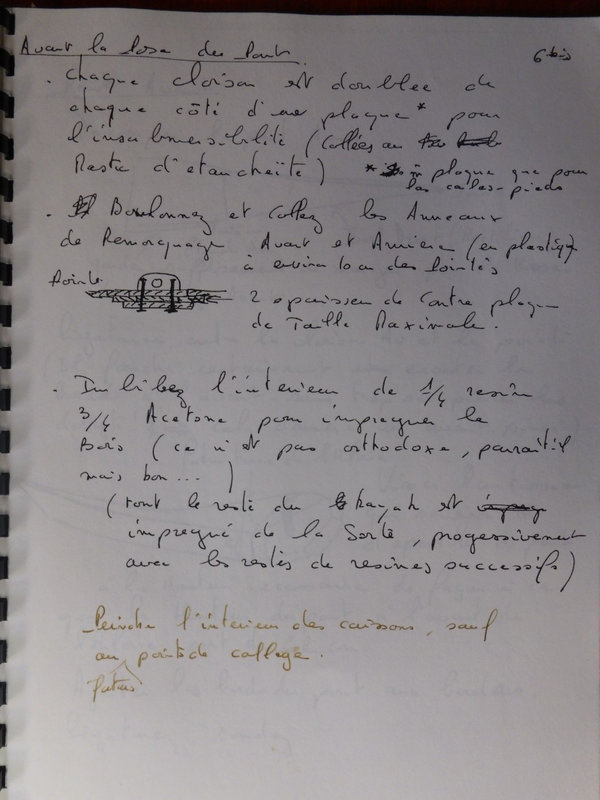 Avant la pose des ponts.
6 bis
. Chaque cloison est doublée de
chaque côté d'une plaque * pour
l'insubmersibilité (Collées au
Mastic d'étancheïté)
* m̄ plaque que pour
les cales-pieds
. Boulonnez et Collez les Anneaux
de Remorquage Avant et Arriere (en plastique)
à environ 10 cm des Pointes
Pointe
2 epaisseur de Contre plaqué
de Taille Maximale.
. Imbibez l'interieur de 1/4 resine
3/4 Acetone pour impregner le
Bois (ce n'est pas orthodoxe, parait-il
mais bon ... )
(tout le reste du kayak est
impregné de la Sorte, progessivement
avec les restes de resines successifs)
Peindre l'interieur des caissons, sauf
au points de collage.
futurs